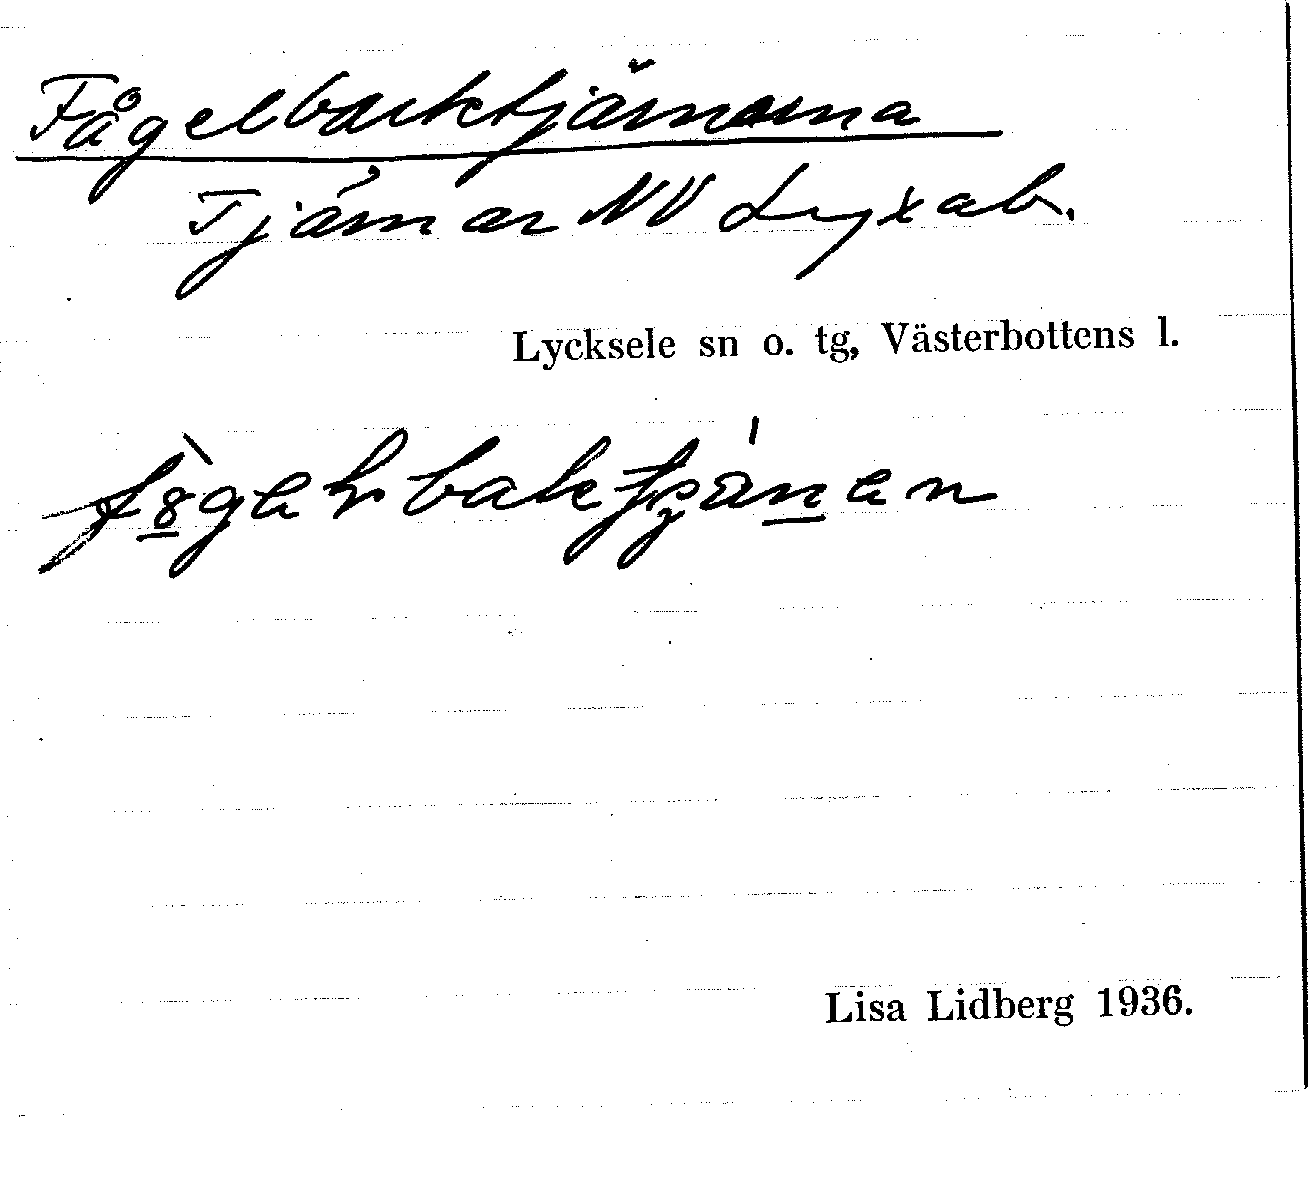 Fågelbacktjärnarna
Tjärnar NV Lyxab.
Lycksele sn o. tg, Västerbottens l.
Lisa Lidberg 1936.